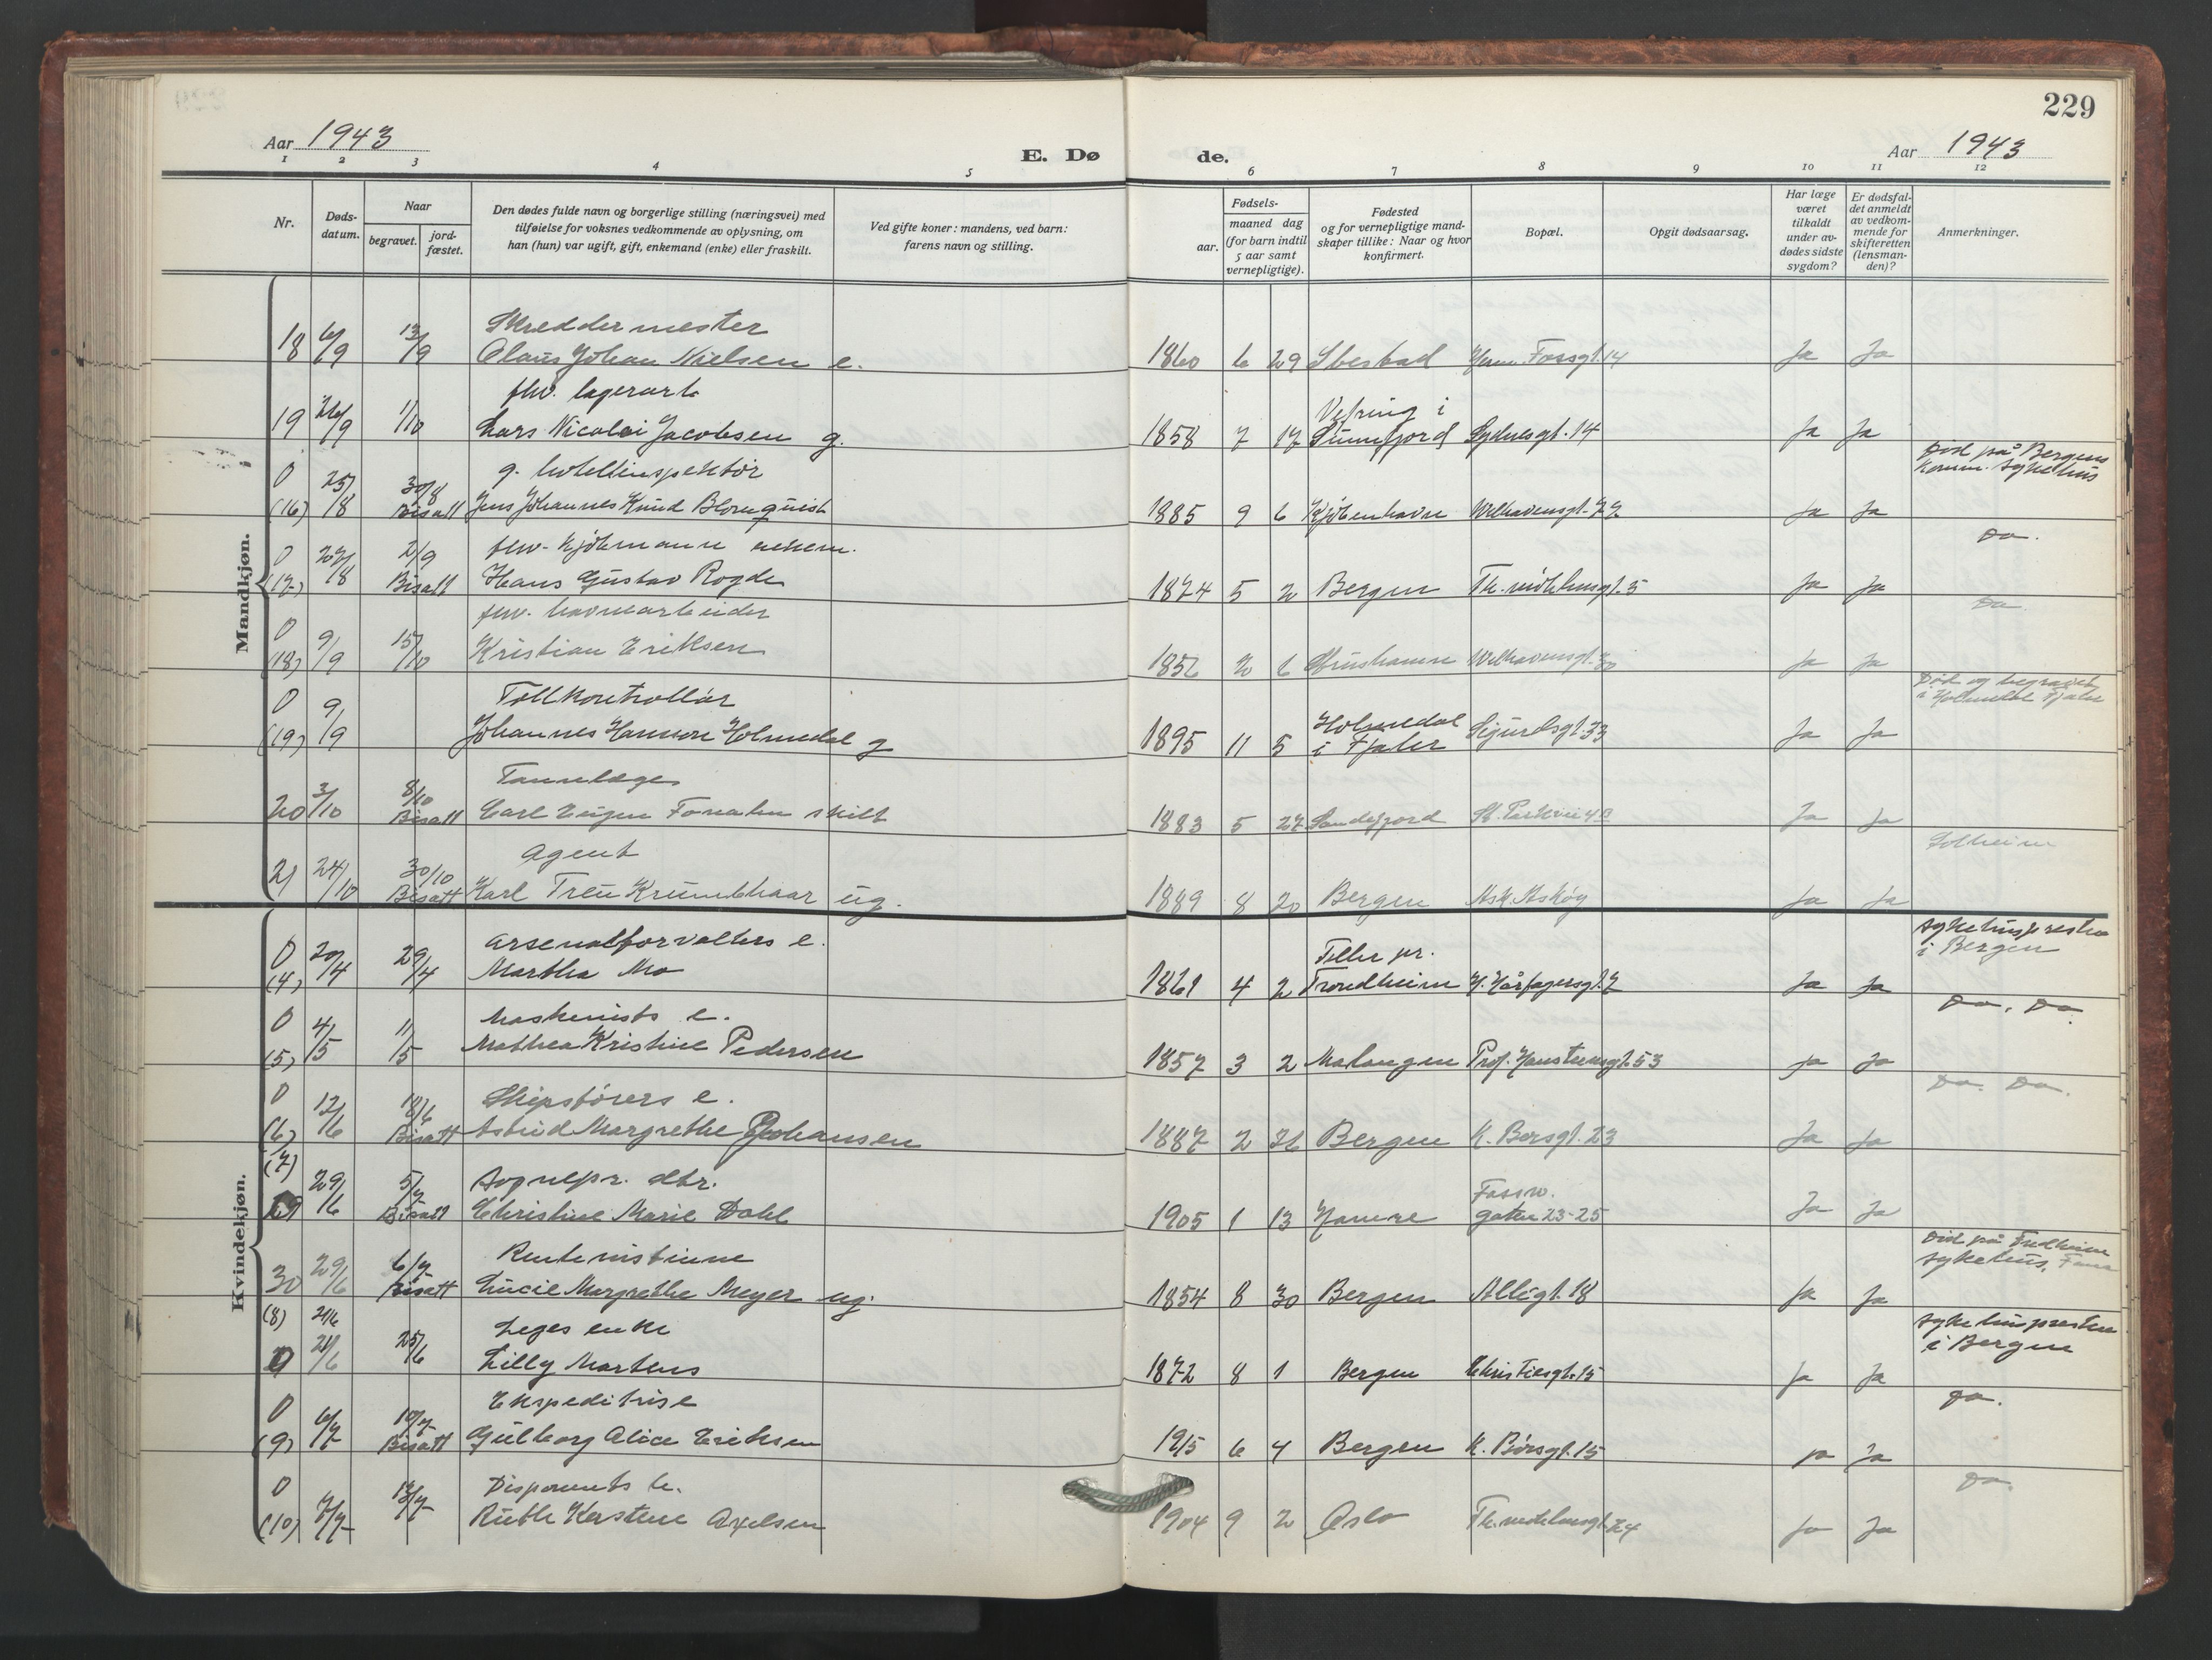 229
Aar 1943
E. Dø
de.
Aar 1943
1 2 3 4 5 6 7 8 9 10 11 12
Nr.
Døds-
datum.
Naar
begravet.
jord-
fæstet.
Den dødes fulde navn og borgerlige stilling (næringsvei) med
tilføielse for voksnes vedkommende av oplysning, om
han (hun) var ugift, gift, enkemand (enke) eller fraskilt.
Ved gifte koner: mandens, ved barn:
farens navn og stilling.
Fødsels-
aar.
maaned dag
(for barn indtil
5 aar samt
vernepligtige).
Fødested
og for vernepligtige mand-
skaper tillike: Naar og hvor
konfirmert.
Bopæl.
Opgit dødsaarsag.
Har læge
været
tilkaldt
under av-
dødes sidste
sygdom?
Er dødsfal-
det anmeldt
av vedkom-
mende for
skifteretten
(lensman-
den)?
Anmerkninger.
Mandkjøn.
Skreddermester
18 6/9 13/9 Olaus Johan Nielsen e. 1860 6 29 Ibestad Herm. Fossgt. 14 Ja Ja
fhv. lagerarb
Vefring i
19 26/9 1/10 Lars Nicolai Jacobsen g. 1858 7 17 Sunnfjord Sydnesgt. 14 Ja Ja
Død på Bergens
Komm. sykehus
0 g. hotellinspektør
(16) 25/8 30/8 Bisatt Jens Johannes Knud Blomquist 1885 9 6 Kjøbenhavn Welhavensgt. 72 Ja Ja
Do.
0 fhv. kjøbmann enkem.
(17) 27/8 2/9 Bisatt Hans Gustav Rogde 1874 5 2 Bergen Th. møhlensgt. 5 Ja Ja
Do.
0 fhv. havnearbeider
(18) 9/9 15/10 Kristian Eriksen 1856 2 6 Strushamn Welhavensgt. Ja Ja
Død og begravet
i Holmedal Fjaler
0 Tollkontrollør
Holmedal
(19) 9/9 Johannes Hansson Holmedal g 1895 11 5 i Fjaler Sigurdsgt. 33 Ja Ja
Tannlæge
20 3/10 8/10 Bisatt Carl Eugen Fonahn skilt 1883 5 27 Sandefjord St. Parkvei 4B Ja Ja
Solheim
Agent
21 24/10 30/10 Bisatt Karl Treu Krumbhaar ug. 1889 8 20 Bergen Ask. Askøy Ja Ja
Kvindekjøn.
sykehuspresten
i Bergen
0 Arsenalforvalters e.
Tiller pr.
(4) 20/4 29/4 Martha Mo 1861 4 2 Trondheim H. Hårfagersgt. 7 Ja Ja
Do. Do.
0 Maskinists e.
(5) 4/5 11/5 Mathea Kristine Pedersen 1857 3 2 Malangen Prof. Hansteensgt. 53 Ja Ja
Do. Do.
0 Skipsførers e.
(6) 12/6 18/6 Bisatt Astrid Margrethe Johansen 1887 2 26 Bergen K. Børsgt. 23 Ja Ja
(7) Sognepr. dtr.
Fossw.
29/6 5/7 Bisatt Christine Marie Dahl 1905 1 13 Hamre gaten 23-25 Ja Ja
Død på Fredheim
sykehus, Fana
Rentenistinne
30 29/6 6/7 Bisatt Lucie Margrethe Meyer ug. 1854 8 30 Bergen Allégt. 18 Ja Ja
sykehuspresten
i Bergen
(8) 21/6 Leges enke
0 21/6 25/6 Lilly Martens 1872 8 1 Bergen Christiesgt. 15 Ja Ja
Do.
0 Ekspeditrise
(9) 6/7 10/7 Bisatt Gulborg Alice Eriksen 1915 6 4 Bergen K. Børsgt. 15 Ja Ja
Do.
0 Disponents h.
(10) 7/7 13/7 Ruth Kerstine Axelsen 1904 9 2 Oslo Th. møhlensgt. 24 Ja Ja